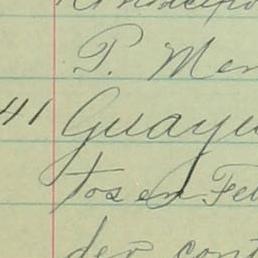 P. Men
41 Guayu
tos en Feb
der cont